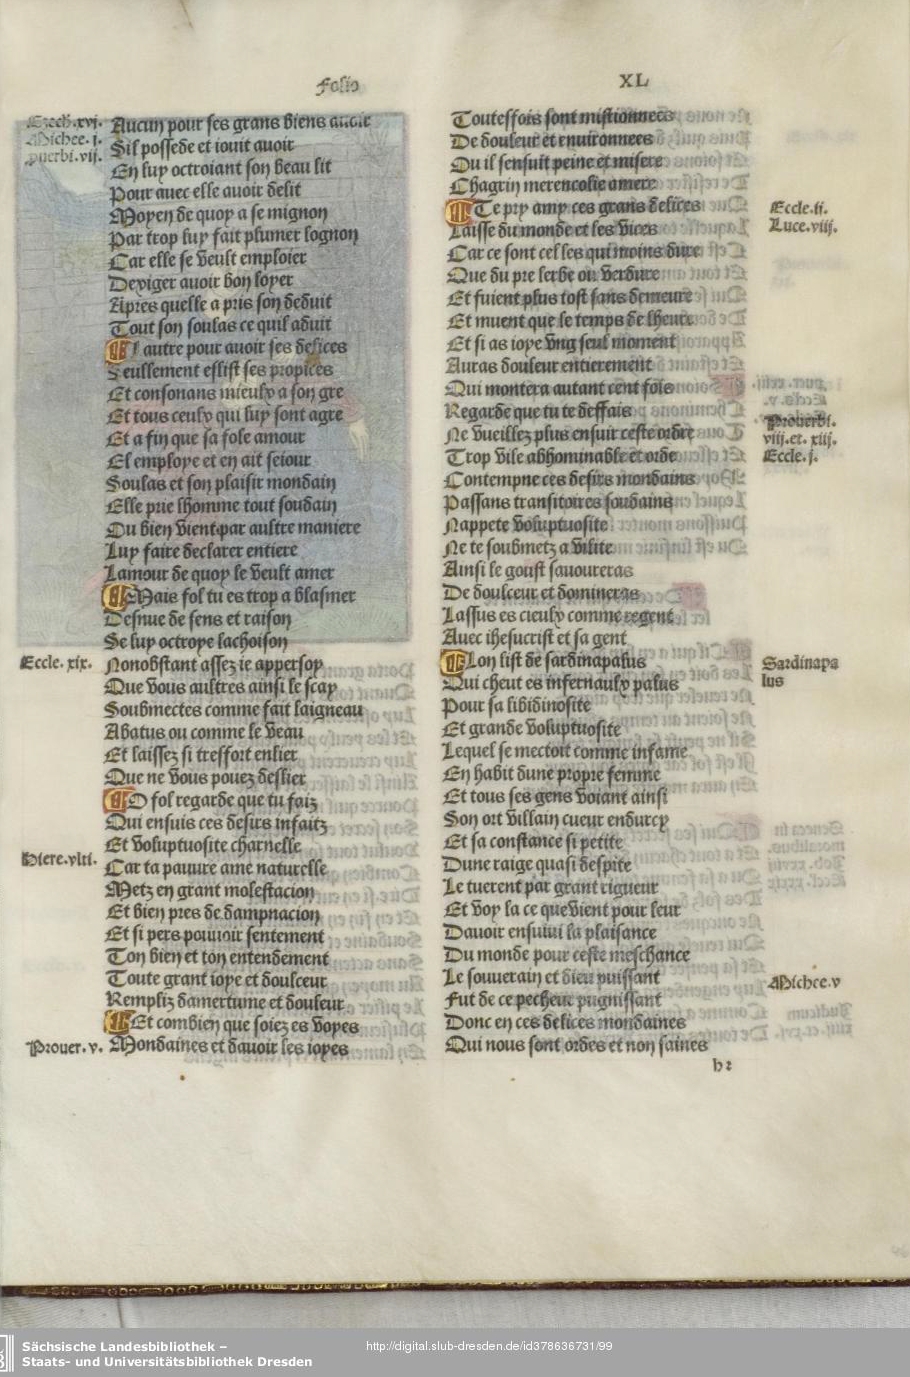 Folio
XL
Ezech.xvj.
Michee.j.
puerbi.vij.
Aucun pour ses grans biens auoir
Sil possede et iouit auoir
En luy octroiant son beau lit
Pour auec elle auoir delit
Moyen de quoy a se mignon
Par trop luy fait plumer lognon
Car elle se veult emploier
Dexiger auoir bon loyer
Apres quelle a pris son deduit
Tout son soulas ce quil aduit
L autre pour auoir ses delices
Seullement eslist ses propices
Et consonans mieulx a son gre
Et tous ceulx qui luy sont agre
Et a fin que sa fole amour
El employe et en ait seiour
Soulas et son plaisir mondain
Elle prie lhomme tout soudain
Ou bien vient par aultre maniere
Luy faire declarer entiere
Lamour de quoy le veult amer
Mais fol tu es trop a blasmer
Desnue de sens et raison
Se luy octroye lachoison
Eccle.xix.
Nonobstant assez ie appersoy
Que vous aultres ainsi le scay
Soubmectes comme fait laigneau
Abatus ou comme le veau
Et laissez si tresfort enlier
Que ne vous pouez deslier
O fol regarde que tu faiz
Qui ensuis ces desirs infaitz
Et voluptuosite charnelle
Hiere.vlti.
Car ta pauure ame naturelle
Metz en grant molestacion
Et bien pres de dampnacion
Et si pers pouuoir sentement
Ton bien et ton entendement
Toute grant ioye et doulceur
Rempliz damertume et douleur
Et combien que soiez es voyes
Prouer.v.
Mondaines et dauoir les ioyes
Toutesfois sont mistionnees
De douleur et enuironnees
Ou il sensuit peine et misere
Chagrin merencolie amere
Te pry amy ces grans delices
Eccle.ij.
Laisse du monde et les vices
Luce.viij.
Car ce sont celles qui moins dure
Que du pre lerbe ou verdure
Et fuient plus tost sans demeure
Et muent que le temps de lheure
Et si as ioye vng seul moment
Auras douleur entierement
Qui montera autant cent fois
Regarde que tu te deffais
Prouerbi.
Ne vueillez plus ensuir ceste ordre
viij.et.xiij.
Trop vile abhominable et orde
Eccle.j.
Contempne ces desirs mondains
Passans transitoires soudains
Nappete voluptuosite
Ne te soubmetz a vilite
Ainsi le goust sauoureras
De doulceur et domineras
Lassus es cieulx comme regent
Auec ihesucrist et sa gent
Lon list de sardinapalus
Sardinapa
lus
Qui cheut es infernaulx palus
Pour sa libidinosite
Et grande voluptuosite
Lequel se mectoit comme infame
En habit dune propre femme
Et tous ses gens voiant ainsi
Son ort villain cueur endurcy
Et sa constance si petite
Dune raige quasi despite
Le tuerent par grant rigueur
Et voy la ce que vient pour leur
Dauoir ensuiui la plaisance
Du monde pour ceste meschance
Le souuerain et dieu puissant
Michee.v
Fut de ce pecheur pugnissant
Donc en ces delices mondaines
Qui nous sont ordes et non saines
h2
Sächsische Landesbibliothek –
Staats- und Universitätsbibliothek Dresden
http://digital.slub-dresden.de/id378636731/99